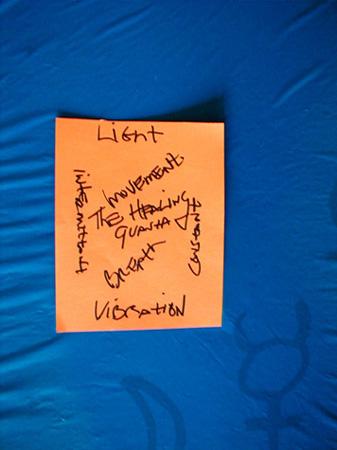 Light
MOVEMENT
THE HEALING
QUANTA
BREATH
VIBRATION
intermittent
CONSTANT